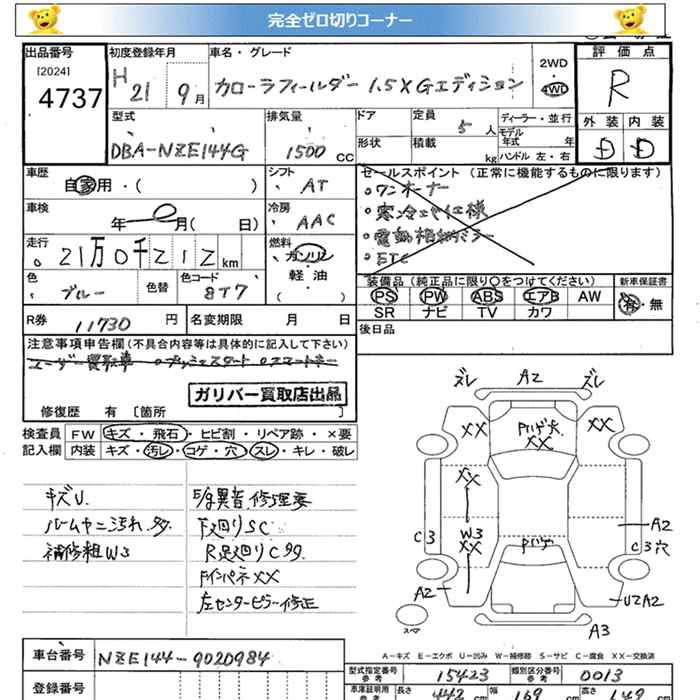 完全ゼロ切りコーナー
出品番号 初度登録年月 車名・グレード 2WD 評価点
[2024]
4737
H 21 9月 カローラフィールダー 1.5XGエディション 4WD
R
型式 排気量 ドア 定員 ディーラー・並行 外装 内装
DBA-NZE144G 1500 CC 5人
モデル年式 年
形状 積載 kg ハンドル 左・右
D D
車歴 自家用・( )
シフト AT
セールスポイント(正常に機能するものに限ります)
・ワンオーナー
・寒冷エリア仕様
・電動格納ミラー
・ETC
車検 年 月( 日)
冷房 AAC
走行 21万0千212km
燃料 ガソリン
軽・油
( )
色 ブルー 色替 色コード 8T7
装備品(純正品に限り○をつけてください) 新車保証書
PS PW ABS エアB AW
SR ナビ TV カワ
有・無
R券 11730円 名変期限 月 日
後日品
注意事項申告欄(不具合内容等は具体的に記入して下さい)
ユーザー買取車 ・プッシュスタート ・スマートキー
ガリバー買取店出品
修復歴 有 [箇所 ]
検査員 FW キズ・飛石・ヒビ割・リペア跡・×要
記入欄 内装 キズ・汚レ・コゲ・穴・スレ・キレ・破レ
キズU.
ルームヤニ汚れ.多.
補修粗W3
E/g異音.修理要
下廻りSC
R足廻りC多.
FインパネXX
左センターピラー修正
ズレ A2 ズレ
XX XX
XX
XX
W3
XX
C3
A2
C3穴
A2
U2A2
スペア
A3
A-キズ E-エクボ U-凹み W-補修跡 S-サビ C-腐食 XX-交換済
車台番号 NZE144-9020984
登録番号
型式指定番号 参考 15423 類別区分番号 参考 0013
車庫証明用 参考 長さ 442 cm 幅 169 cm 高さ 149 cm